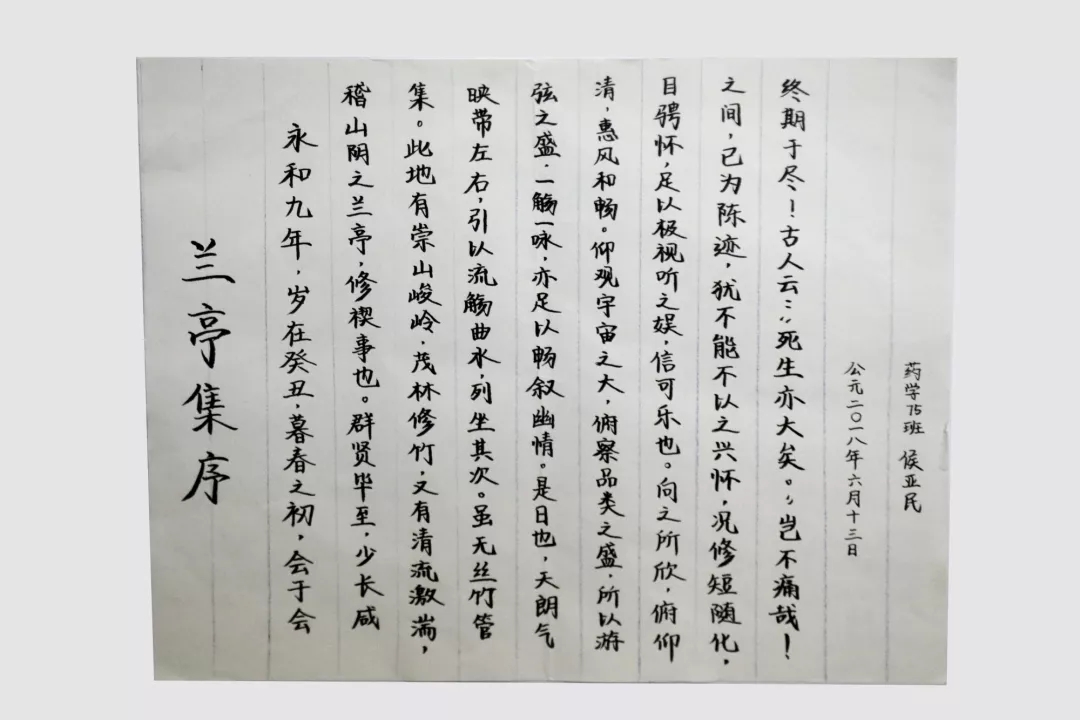 兰亭集序
永和九年，岁在癸丑，暮春之初，会于会
稽山阴之兰亭，修禊事也。群贤毕至，少长咸
集。此地有崇山峻岭，茂林修竹，又有清流激湍，
映带左右，引以流觞曲水，列坐其次。虽无丝竹管
弦之盛，一觞一咏，亦足以畅叙幽情。是日也，天朗气
清，惠风和畅。仰观宇宙之大，俯察品类之盛，所以游
目骋怀，足以极视听之娱，信可乐也。向之所欣，俯仰
之间，已为陈迹，犹不能不以之兴怀，况修短随化，
终期于尽！古人云：“死生亦大矣。”岂不痛哉！
公元二〇一八年六月十三日
药学75班 侯亚民